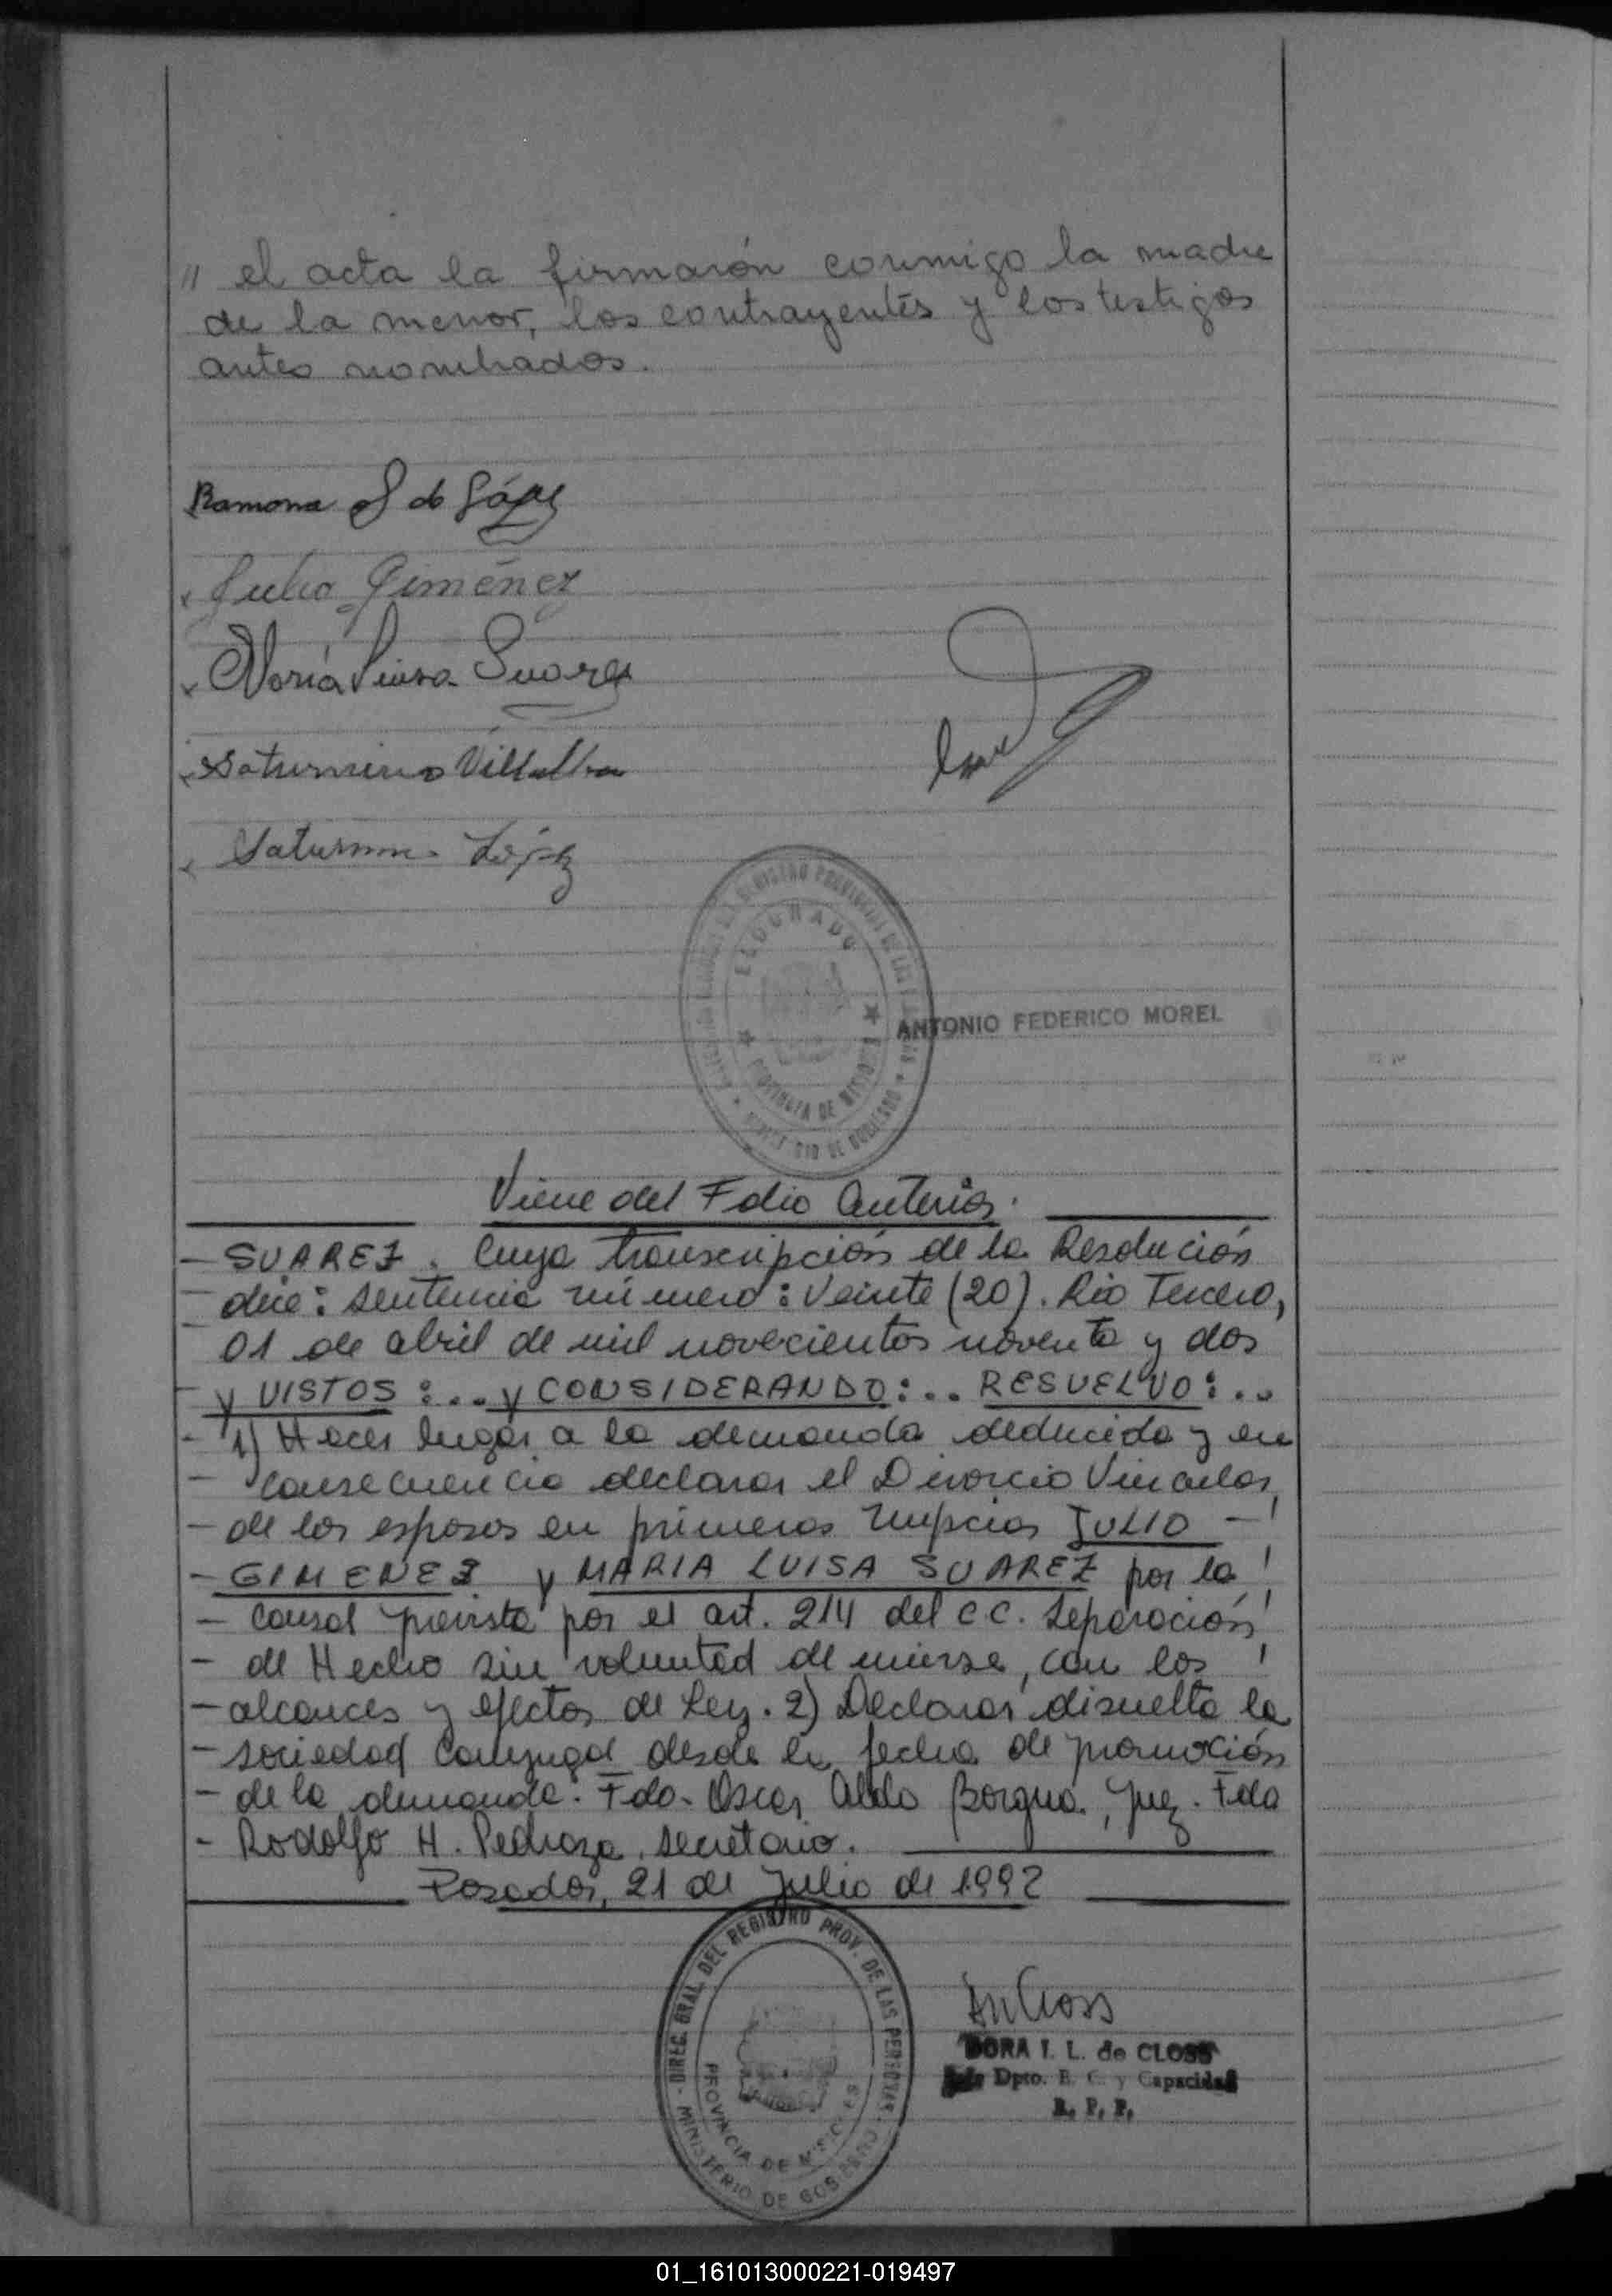 // el acta la firmarón conmigo la madre
de la menor, los contrayentes y los testigos
antes nombrados.
Ramona S de López
x Julio Giménez
x María Luisa Suarez
x Saturnino Villalba
x Saturnino López
ELDORADO
PROVINCIA DE MISIONES
ANTONIO FEDERICO MOREL
Viene del Folio Anterior.
- SUAREZ. Cuya transcripción de la Resolución
- dice: Sentencia número: Veinte (20). Rio Tercero,
- 01 de abril de mil novecientos noventa y dos
- y VISTOS:... y CONSIDERANDO:.. RESUELVO:..
- 1) Hacer lugar a la demanda deducida y en
- consecuencia declarar el Divorcio Vincular
- de los esposos en primeras nupcias JULIO -
- GIMENEZ y MARIA LUISA SUAREZ por la
- causal prevista por el art. 214 del C.C. Separación
- de Hecho sin voluntad de unirse, con los
- alcances y efectos de Ley. 2) Declarar disuelta la
- sociedad conyugal desde la fecha de promoción
- de la demanda. Fdo. Oscar Aldo Borgna, Juez. Fdo
- Rodolfo H. Pedraza, secretario.
Posadas, 21 de Julio de 1992
DIREC. GRAL. DEL REGISTRO PROV. DE LAS PERSONAS
PROVINCIA DE MISIONES
MINISTERIO DE GOBIERNO
DORA I. L. de CLOSS
Jefe Dpto. E. C. y Capacidad
R. P. P.
01_161013000221-019497